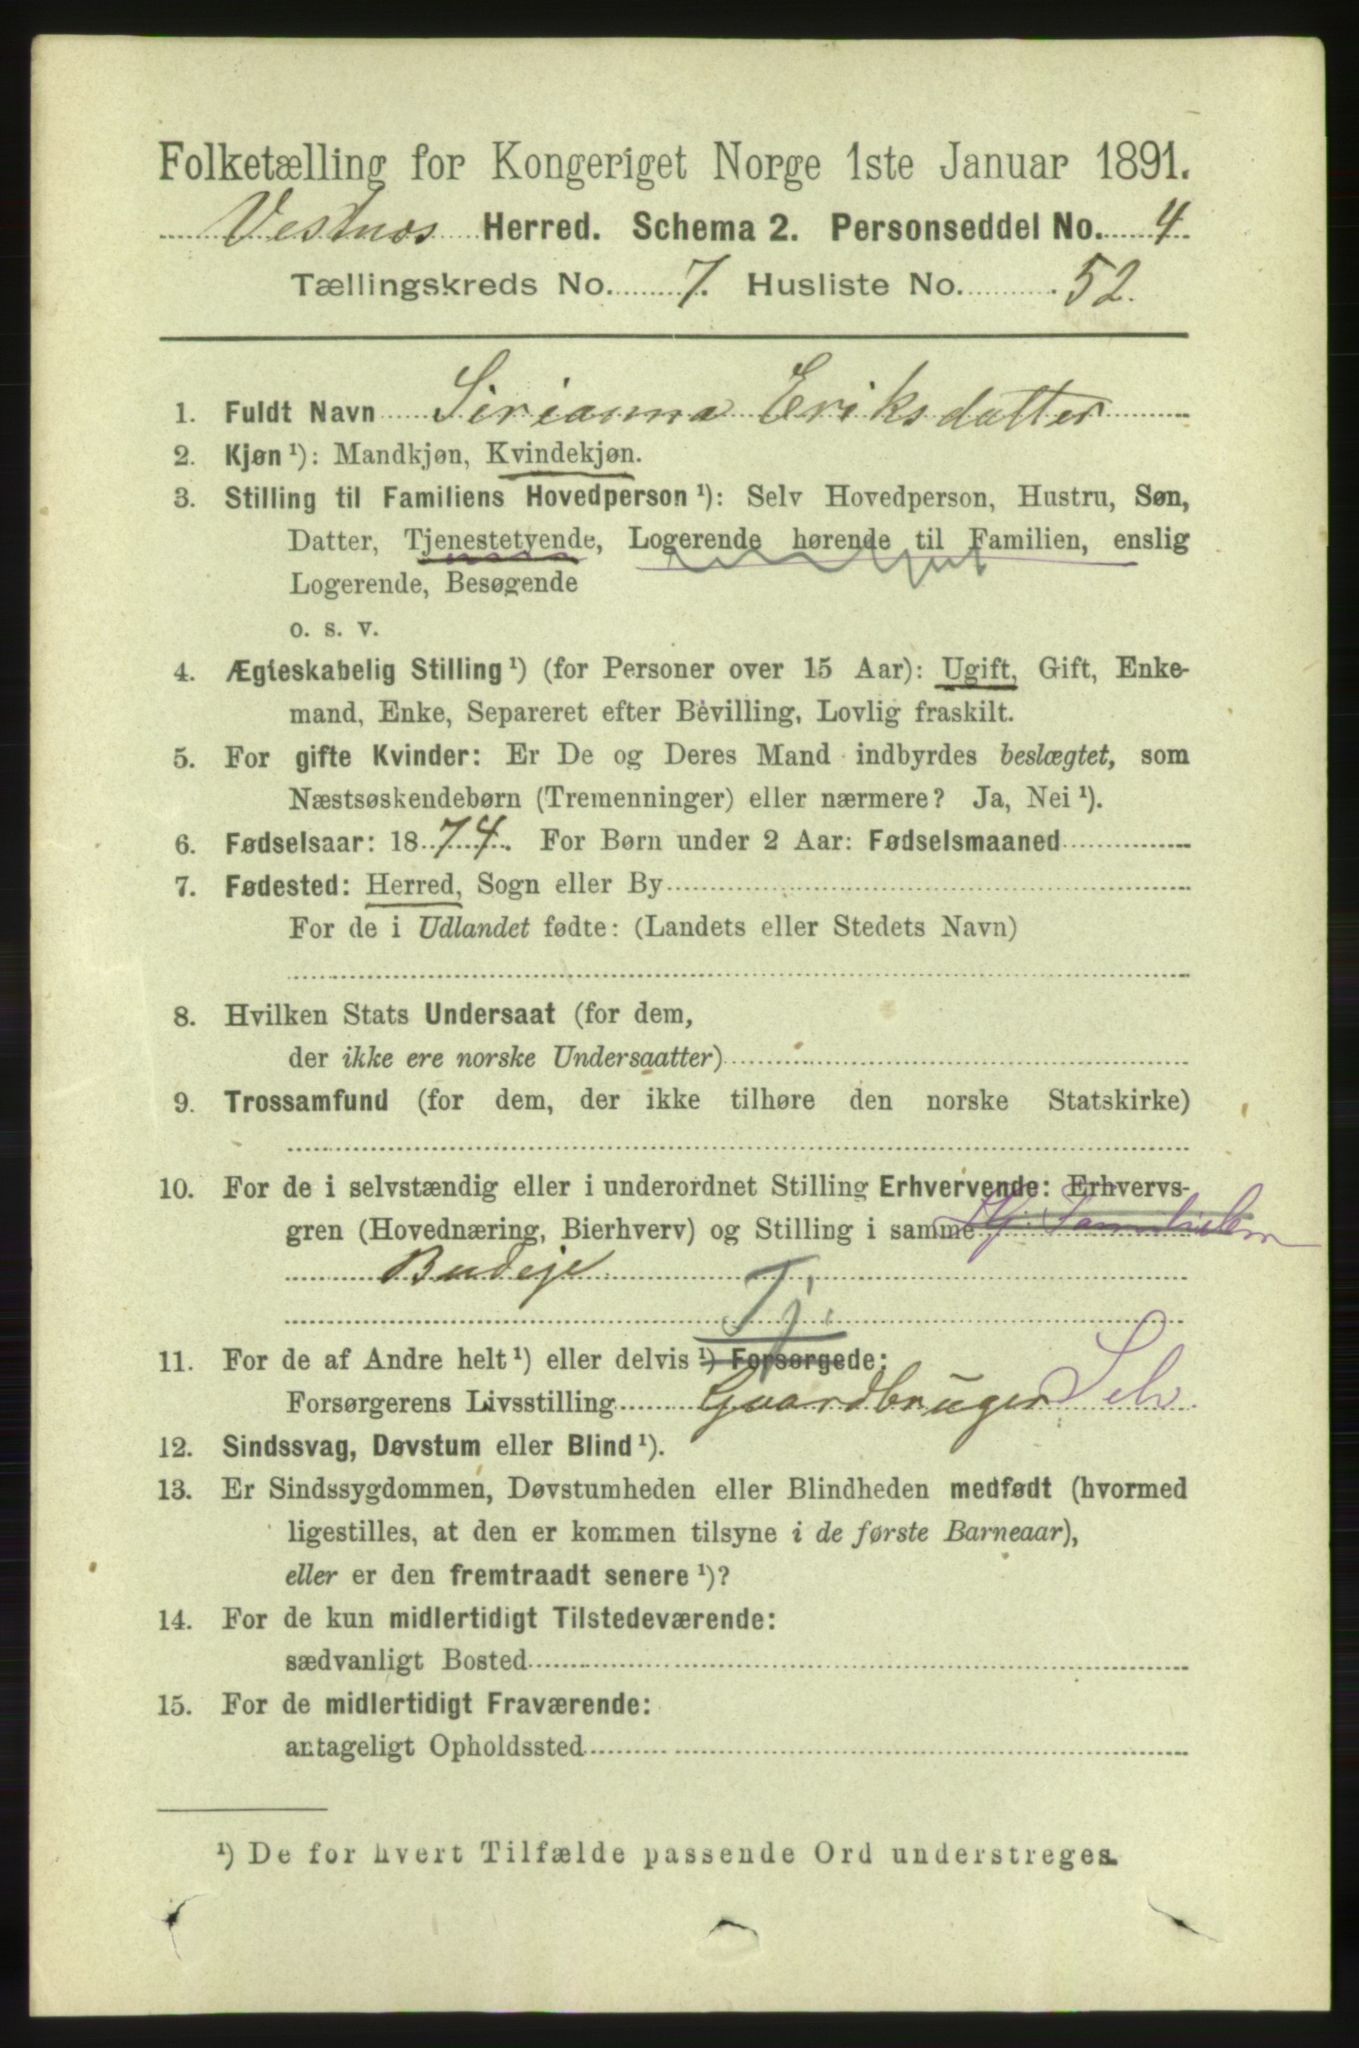 Folketælling for Kongeriget Norge 1ste Januar 1891.
Vestnes Herred. Schema 2. Personseddel No. 4
Tællingskreds No. 7. Husliste No. 52.
1. Fuldt Navn Sirianna Eriksdatter
2. Kjøn ¹): Mandkjøn, Kvindekjøn.
3. Stilling til Familiens Hovedperson ¹): Selv Hovedperson, Hustru, Søn,
Datter, Tjenestetyende, Logerende hørende til Familien, enslig
Logerende, Besøgende
o. s. v.
4. Ægteskabelig Stilling ¹) (for Personer over 15 Aar): Ugift, Gift, Enke-
mand, Enke, Separeret efter Bevilling, Lovlig fraskilt.
5. For gifte Kvinder: Er De og Deres Mand indbyrdes beslægtet, som
Næstsøskendebørn (Tremenninger) eller nærmere? Ja, Nei ¹).
6. Fødselsaar: 1874. For Børn under 2 Aar: Fødselsmaaned
7. Fødested: Herred, Sogn eller By
For de i Udlandet fødte: (Landets eller Stedets Navn)
8. Hvilken Stats Undersaat (for dem,
der ikke ere norske Undersaatter)
9. Trossamfund (for dem, der ikke tilhøre den norske Statskirke)
10. For de i selvstændig eller i underordnet Stilling Erhvervende: Erhvervs-
gren (Hovednæring, Bierhverv) og Stilling i samme Familien
Budeje
Tj.
11. For de af Andre helt ¹) eller delvis ¹) Forsørgede:
Forsørgerens Livsstilling Gaardbruger Selv.
12. Sindssvag, Døvstum eller Blind ¹).
13. Er Sindssygdommen, Døvstumheden eller Blindheden medfødt (hvormed
ligestilles, at den er kommen tilsyne i de første Barneaar),
eller er den fremtraadt senere ¹)?
14. For de kun midlertidigt Tilstedeværende:
sædvanligt Bosted
15. For de midlertidigt Fraværende:
antageligt Opholdssted
¹) De for hvert Tilfælde passende Ord understreges.